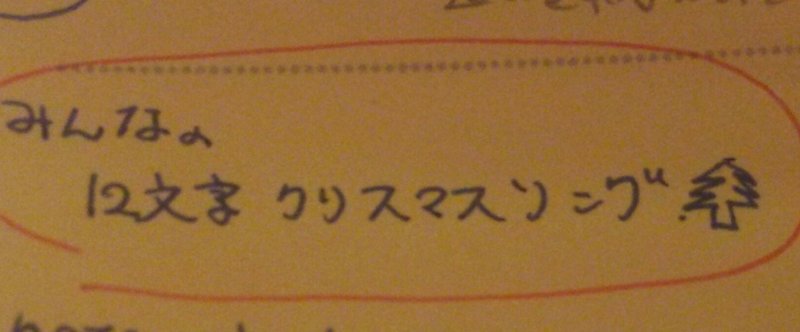 みんなの
12文字 クリスマスソング